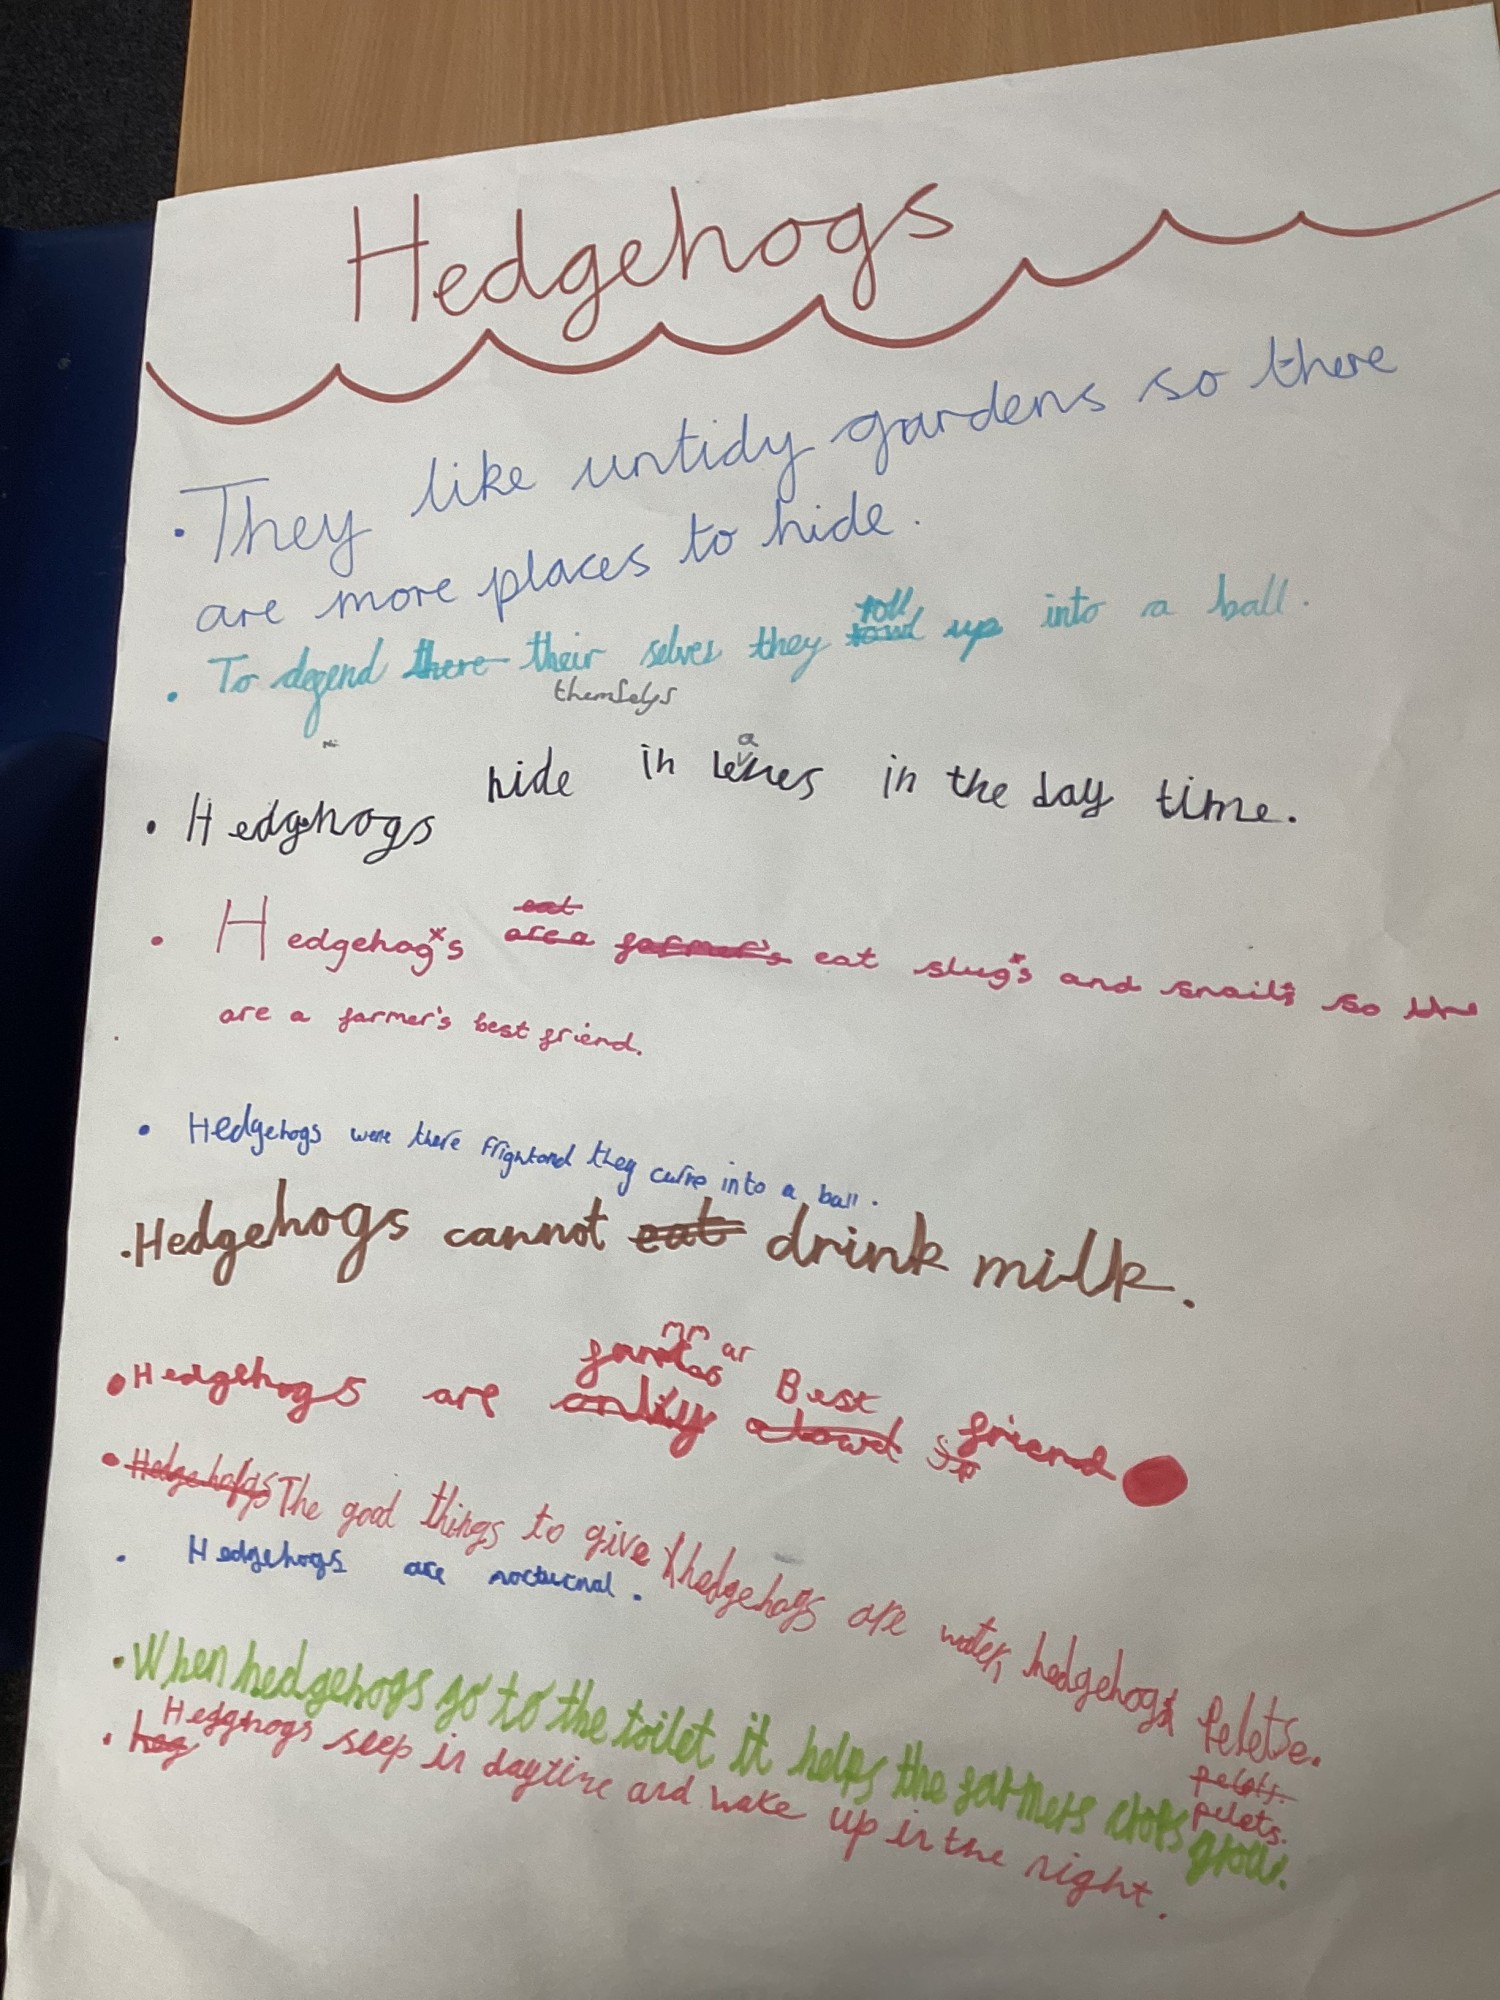 Hedgehogs
• They like untidy gardens so there
are more places to hide.
• To defend there their selves they roll up into a ball.
themselys
• Hedgehogs hide in leaves in the day time.
eat
• Hedgehogs are a farmer's eat slugs and snails so
are a farmer's best friend.
• Hedgehogs were there frightond they curve into a ball.
• Hedgehogs cannot eat drink milk.
mm ar
• Hedgehogs are Best friend
• Hedgehogs The good things to give hedgehogs are water, hedgehog pelets.
pelets.
pelets.
• Hedgehogs are nocturnal.
• When hedgehogs go to the toilet it helps the farmers crops grow.
• hog Hedghogs seep in daytime and wake up in the night.